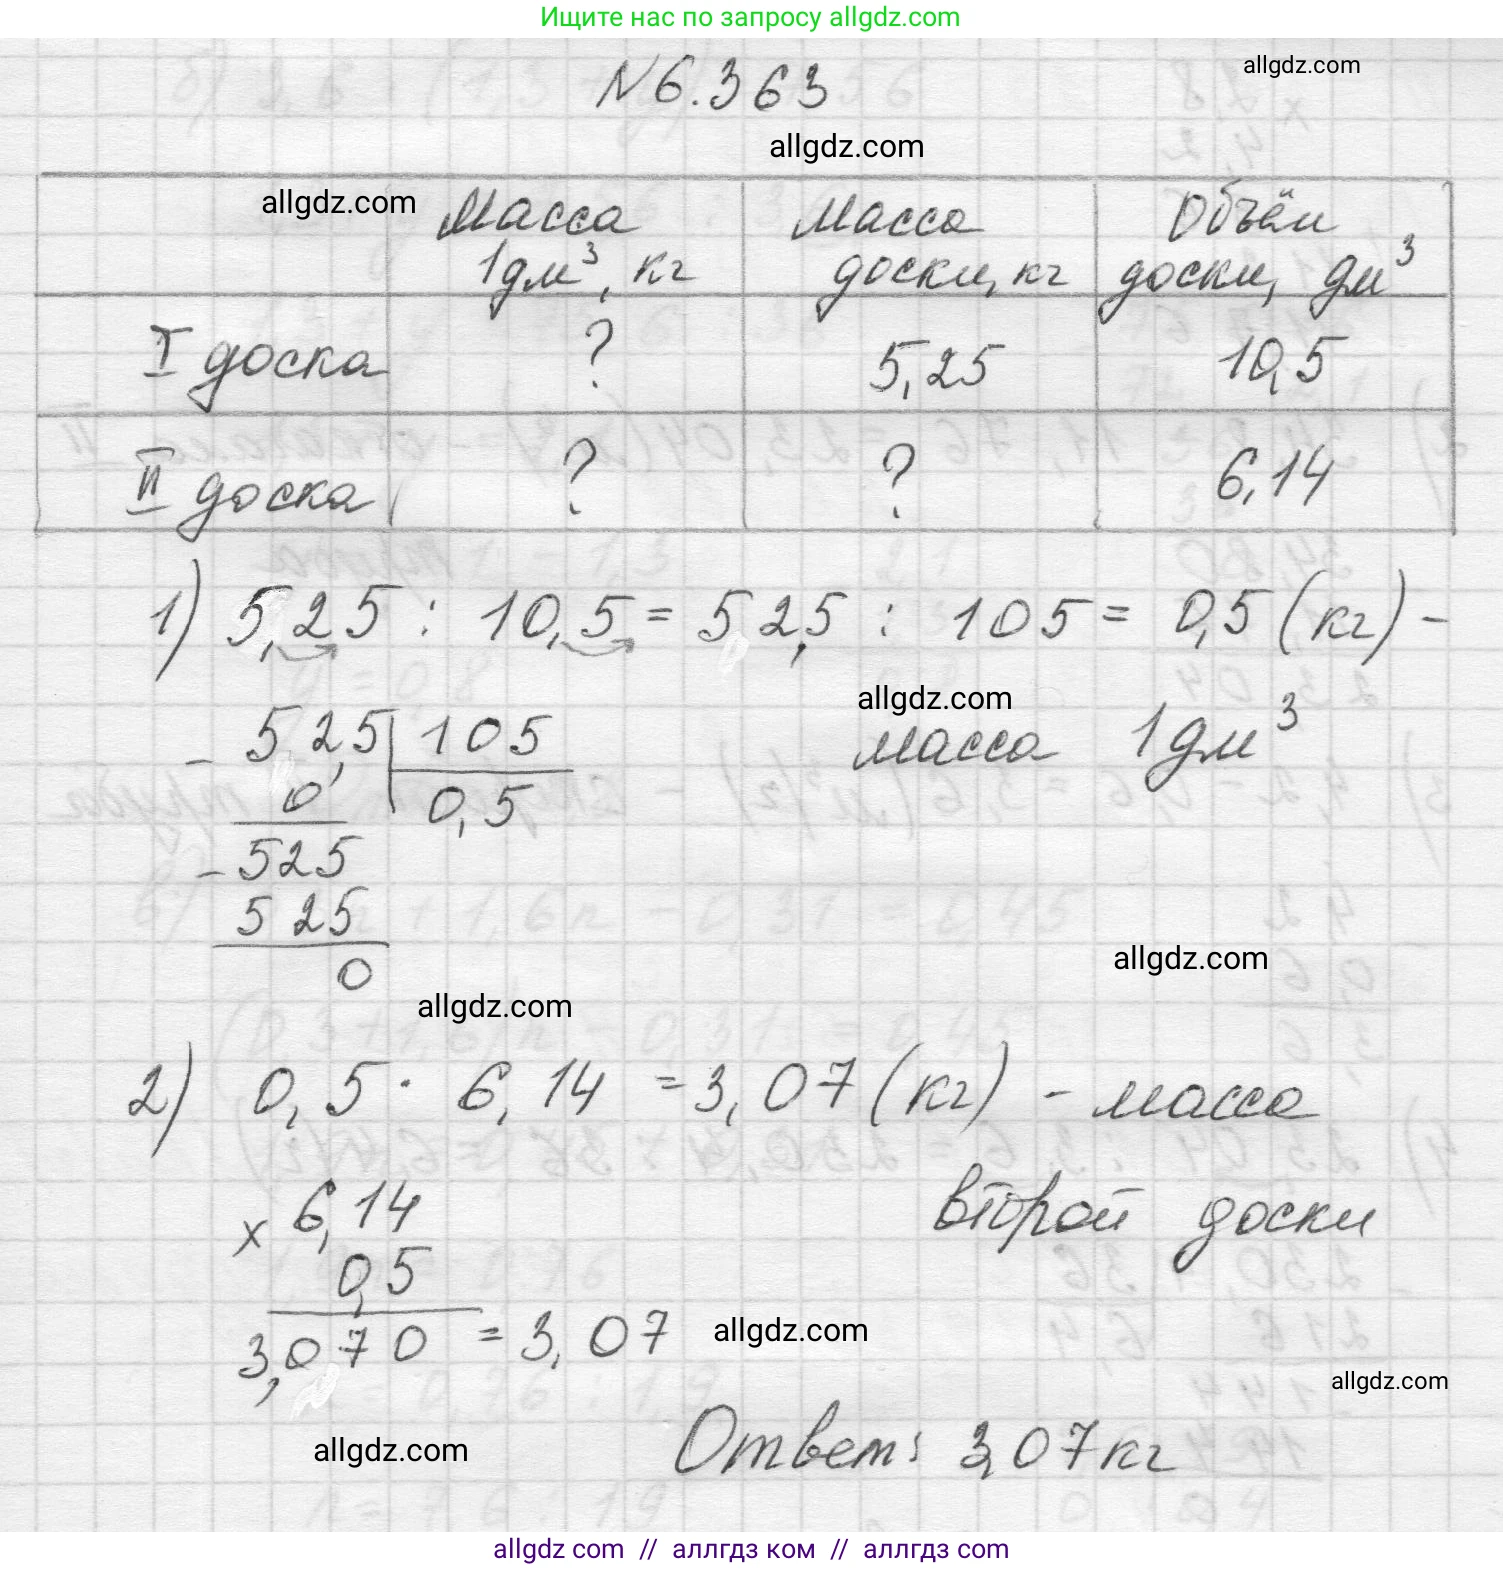 Ищите нас по запросу allgdz.com
allgdz.com
№ 6.363
allgdz.com
allgdz.com
Масса 1дм³, кг
Масса доски, кг
Объём доски, дм³
I доска ? 5,25 10,5
II доска ? ? 6,14
1) 5,25 : 10,5 = 52,5 : 105 = 0,5 (кг) -
allgdz.com
масса 1дм³
- 52,5 | 105
0 0,5
- 525
525
0
allgdz.com
allgdz.com
2) 0,5 · 6,14 = 3,07 (кг) - масса
второй доски
x 6,14
0,5
3,070 = 3,07
allgdz.com
allgdz.com
allgdz.com
Ответ: 3,07 кг
allgdz.com // аллгдз ком // аллгдз com